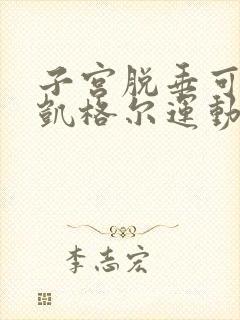 子宫脱垂可
凯格尔运動
李志宏